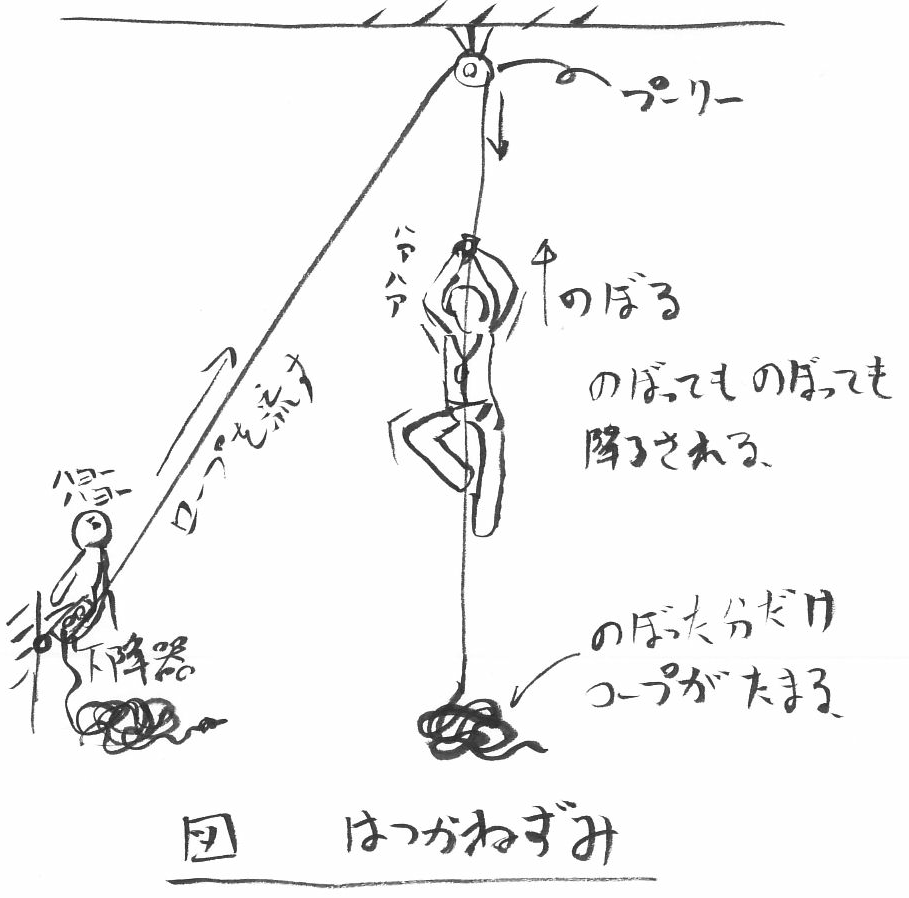 プーリー
ハアハア
のぼる
のぼっても のぼっても
降ろされる、
ロープを流す
ハヨー
ハヨー
下降器
のぼった分だけ
ロープがたまる、
図 はつかねずみ